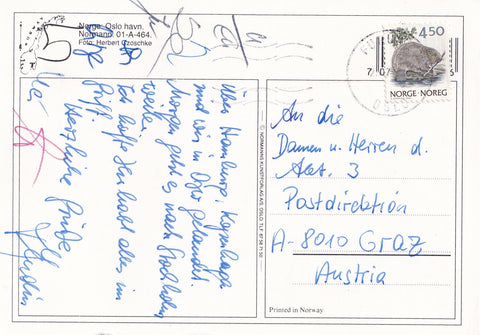 Norge: Oslo havn.
Normann: 01-A-464.
Foto: Herbert Czoschke
4.50
NORGE · NOREG
Über Hamburg, Kopenhagen
sind wir in Oslo gelandet.
Morgen geht es nach Stockholm
weiter.
Ich hoffe Ihr habt alles im
Griff.
Herzliche Grüße
© NORMANNS KUNSTFORLAG A/S, OSLO. TLF
An die
Damen u. Herren d.
Abt. 3
Postdirektion
A-8010 Graz
Austria
Printed in Norway